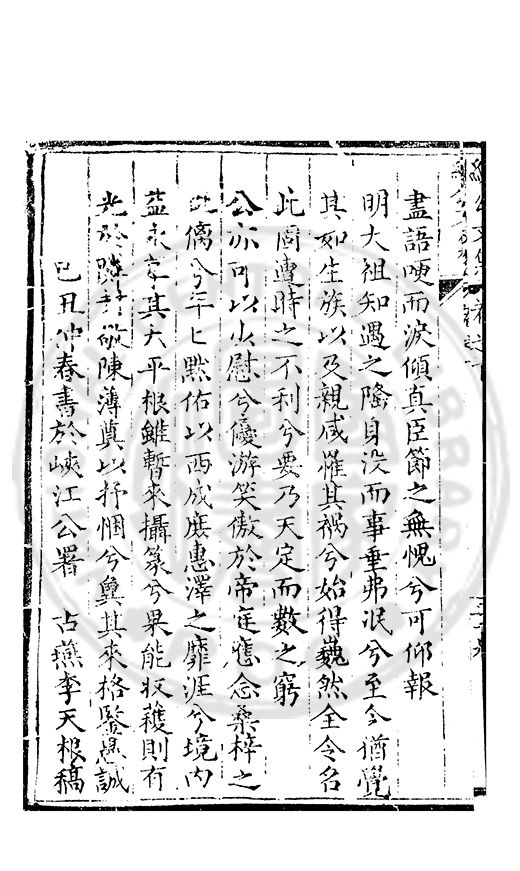 盡語哽而淚傾真臣節之無愧兮可仰報
明大祖知遇之隆身没而事垂弗泯兮至今猶覺
其如生族以及親戚罹其禍兮始得巍然全令名
此固遭時之不利兮要乃天定而數之窮
公亦可以少慰兮優游笑傲於帝庭應念桑梓之
傷兮年匕黙佑以西成庶惠澤之靡涯兮境内
益永享其太平根雖暫來攝篆兮果能收穫則有
光於敬陳薄奠以抒悃兮兾其來格鑒愚誠
己丑仲春書於峽江公署 古燕李天根稿